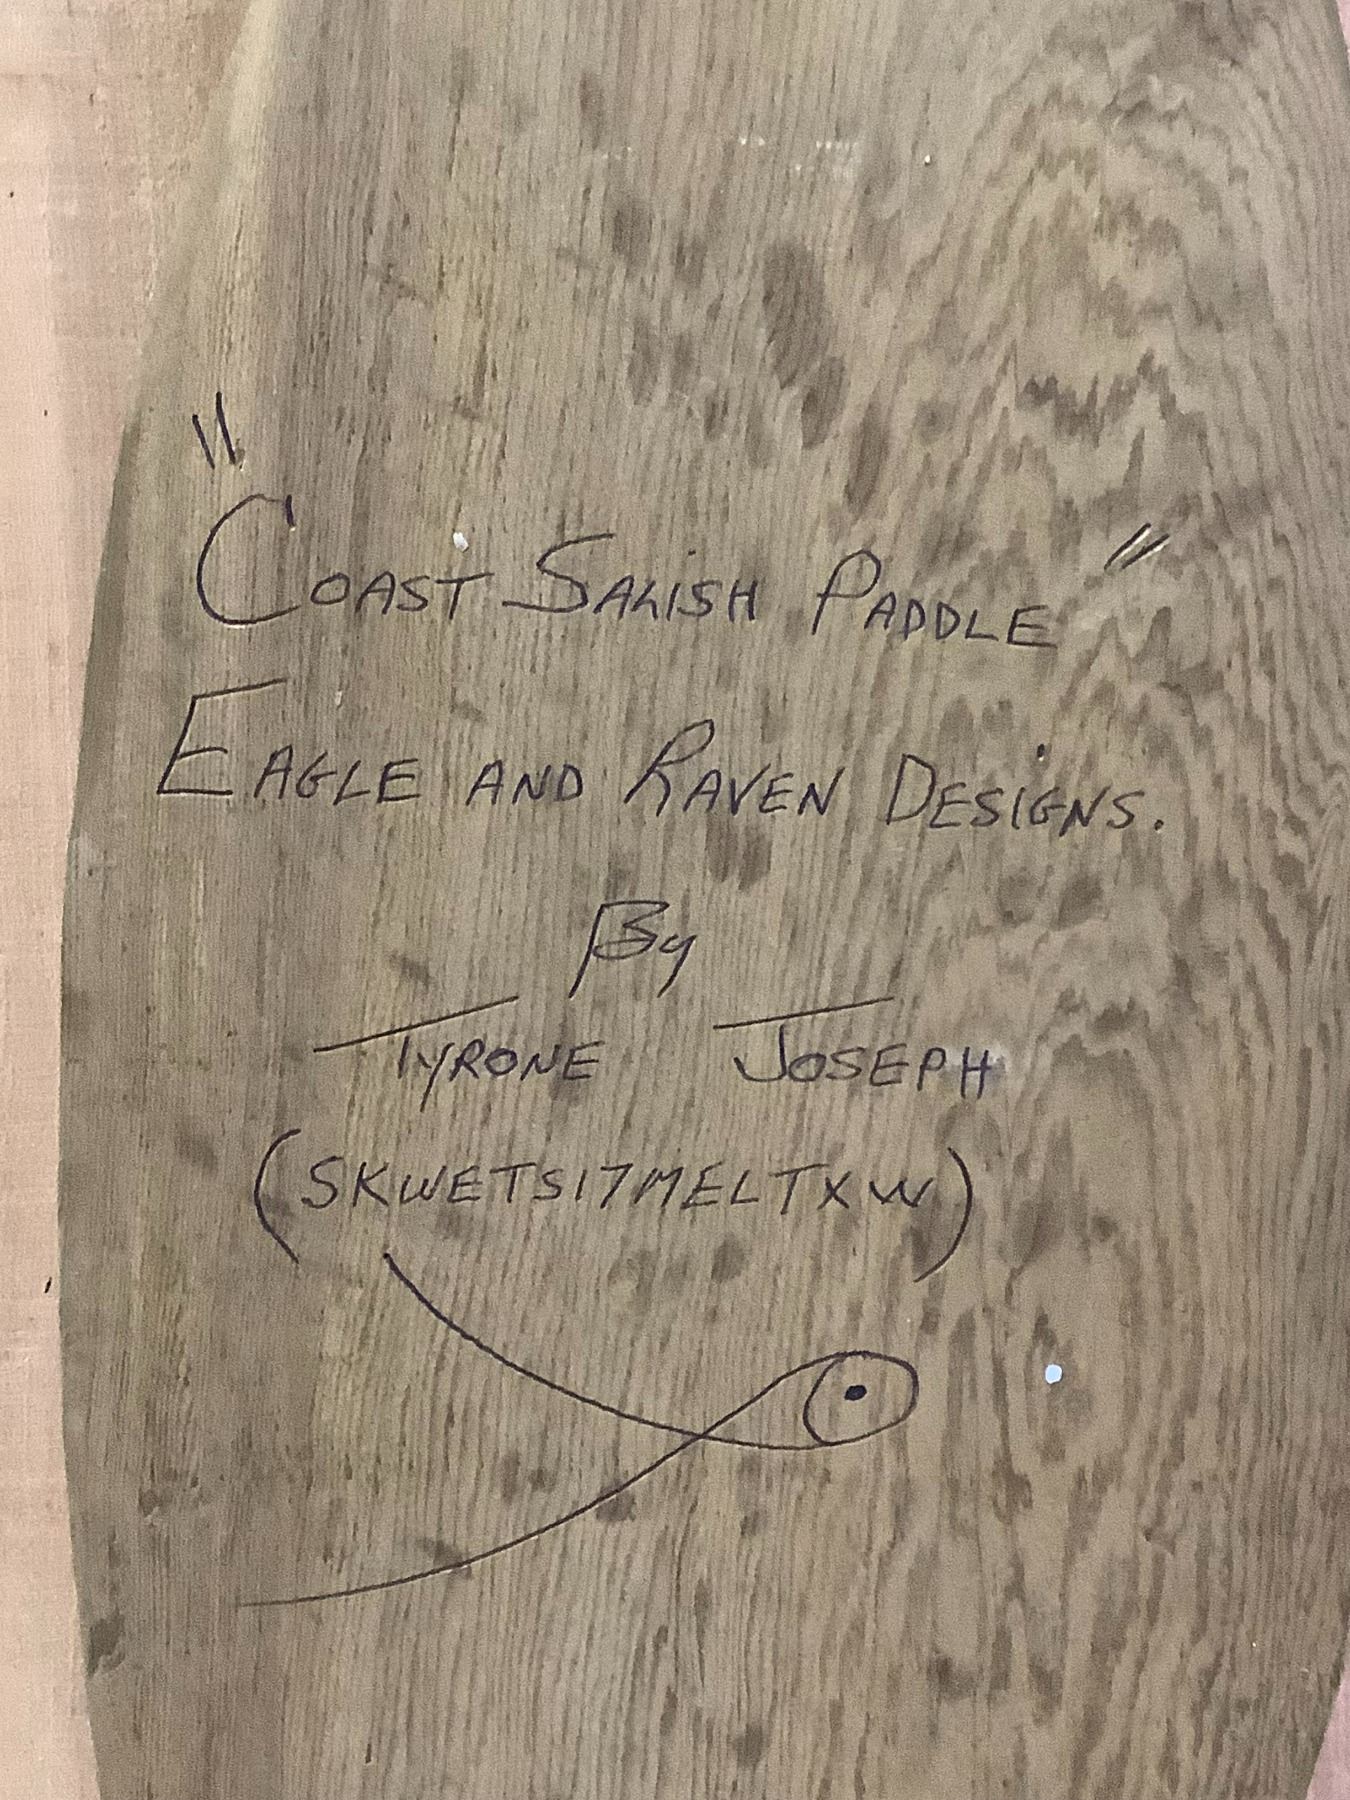 "COAST SALISH PADDLE"
EAGLE AND RAVEN DESIGNS.
By
TYRONE JOSEPH
(SKWETSI7MELTXW)